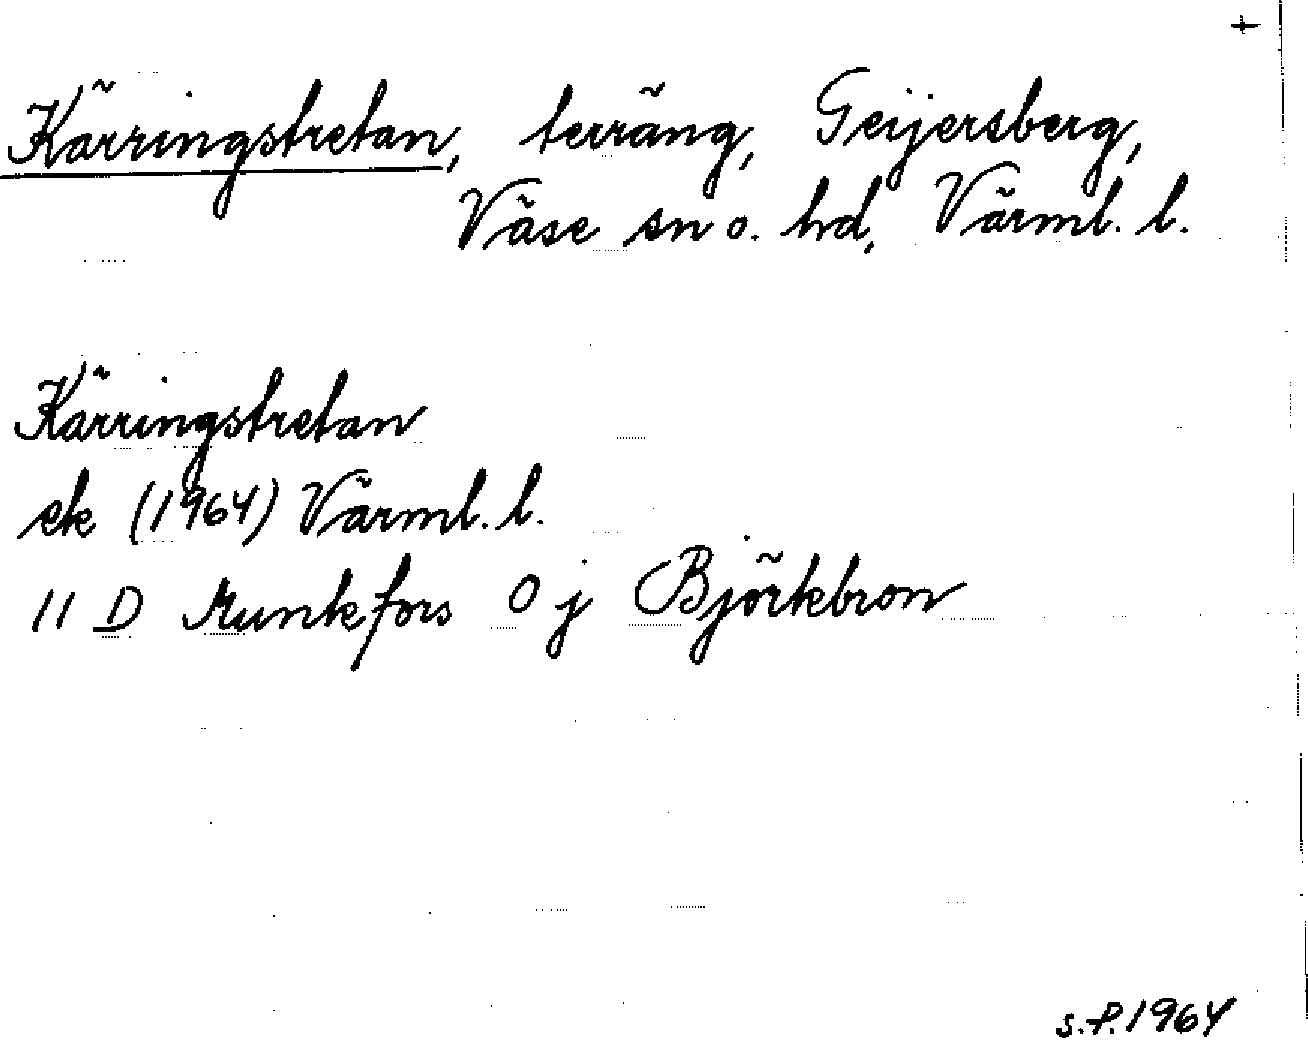 +
Kärringstretan, terräng, Geijersberg,
Väse sn o. hd, Värml. l.
Kärringstretan
ek (1964) Värml. l.
11 D Munkfors 0 j Björkbron
s.f.1964